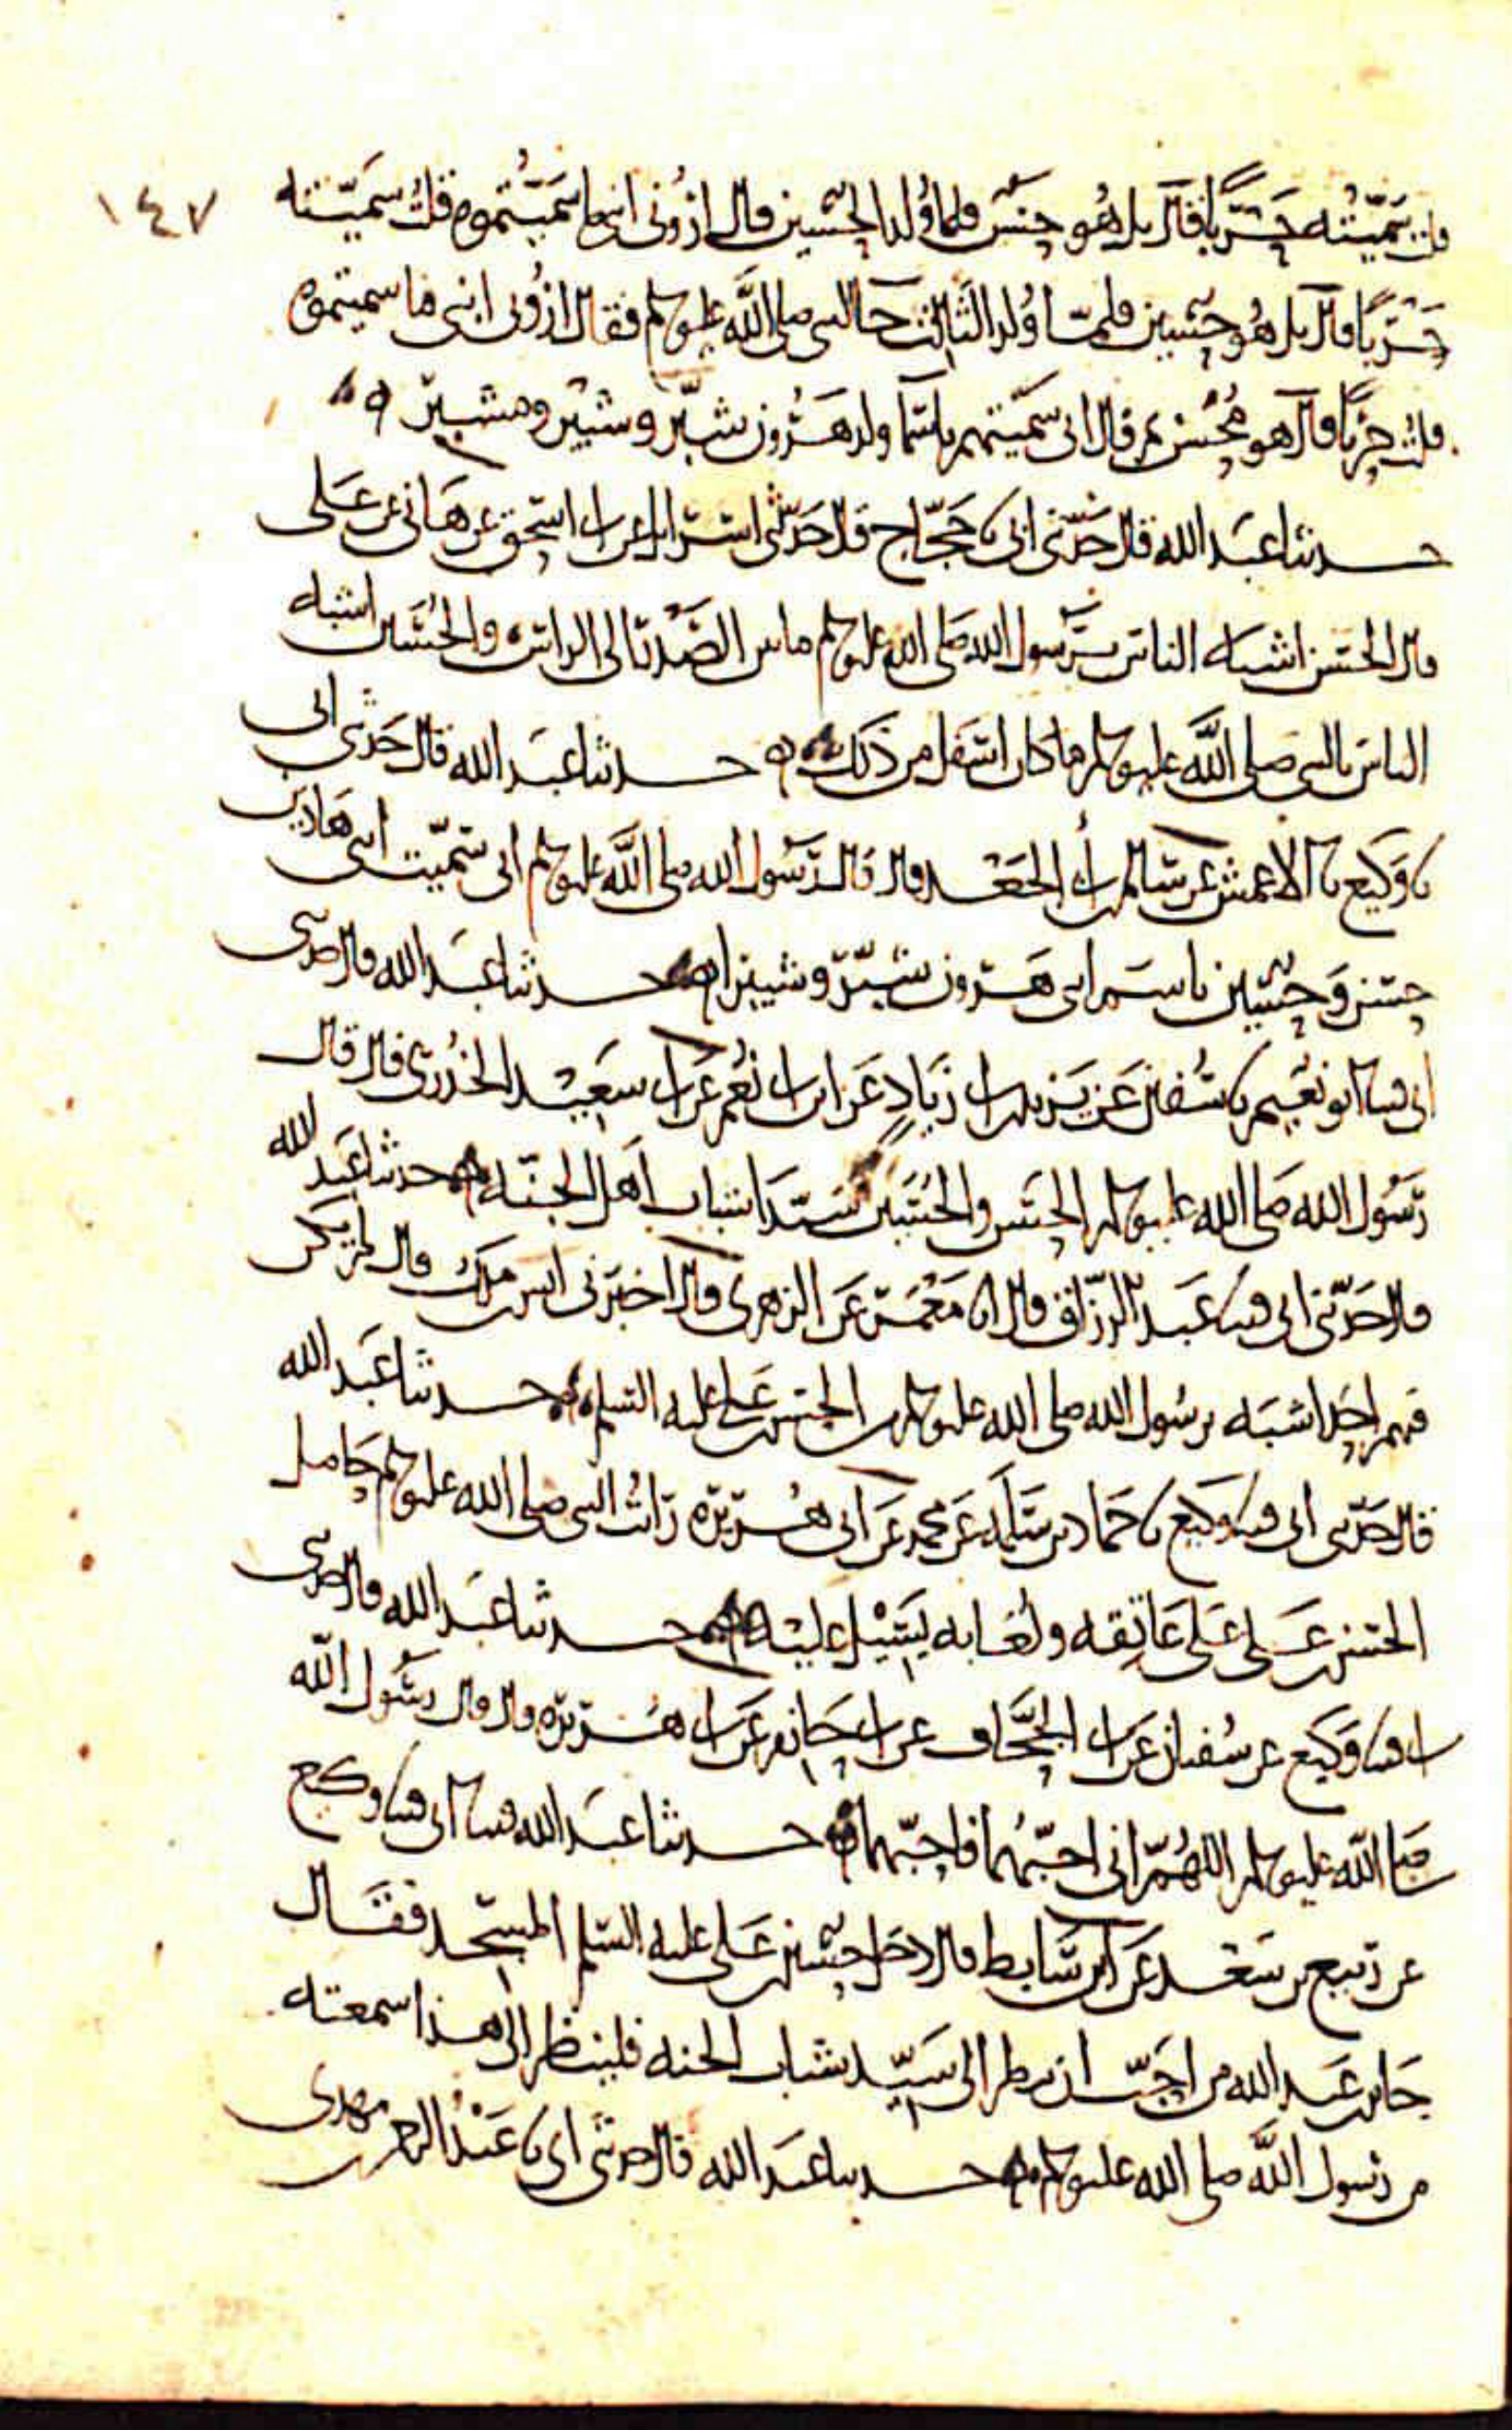 ١٤٧
قلت سميته حربا فقال بل هو حسن فلما ولد الحسين قال اروني ابني ما سميتموه قلت سميته
حربا قال بل هو حسين فلما ولد الثالث جا النبي صلى الله عليه وسلم فقال اروني ابني ما سميتموه
قلت حربا قال هو محسن ثم قال اني سميتهم باسما ولد هرون شبر وشبير ومشبر
حدثنا عبد الله قال حدثني ابي نا حجاج قال حدثني اسرائيل عن ابي اسحق عن هانئ عن علي
قال الحسن اشبه الناس برسول الله صلى الله عليه وسلم ما بين الصدر الى الراس والحسين اشبه
الناس بالنبي صلى الله عليه وسلم ما كان اسفل من ذلك حدثنا عبد الله قال حدثني ابي
نا وكيع نا الاعمش عن سالم بن ابي الجعد قال قال رسول الله صلى الله عليه وسلم اني سميت ابني هاذين
حسن وحسين باسم ابني هرون شبر وشبيرا حدثنا عبد الله قال حدثني
ابي قثنا ابو نعيم نا سفين عن يزيد بن ابي زياد عن ابن ابي نعم عن ابي سعيد الخدري قال قال
رسول الله صلى الله عليه وسلم الحسن والحسين سيدا شباب اهل الجنه حدثنا عبد الله
قال حدثني ابي قثنا عبد الرزاق قال انا معمر عن الزهري قال اخبرني انس بن ملك قال لم يكن
فيهم احد اشبه برسول الله صلى الله عليه وسلم من الحسن بن علي عليه السلم حدثنا عبد الله
قال حدثني ابي قثنا وكيع نا حماد بن سلمه عن محمد عن ابي هريره رايت النبي صلى الله عليه وسلم حامل
الحسن بن علي على عاتقه ولعابه يسيل عليه حدثنا عبد الله قال حدثني
ابي قثنا وكيع عن سفيان عن ابي الجحاف عن ابي حازم عن ابي هريره قال قال رسول الله
صلى الله عليه وسلم اللهم اني احبهما فاحبهما حدثنا عبد الله قثنا ابي قثنا وكيع
عن ربيع بن سعد عن ابن سابط قال دخل حسين بن علي عليه السلم المسجد فقال
جابر بن عبد الله من احب ان ينظر الى سيد شباب الجنه فلينظر الى هذا سمعته
من رسول الله صلى الله عليه وسلم حدثنا عبد الله قال حدثني ابي نا عبد الرحمن بن مهدي